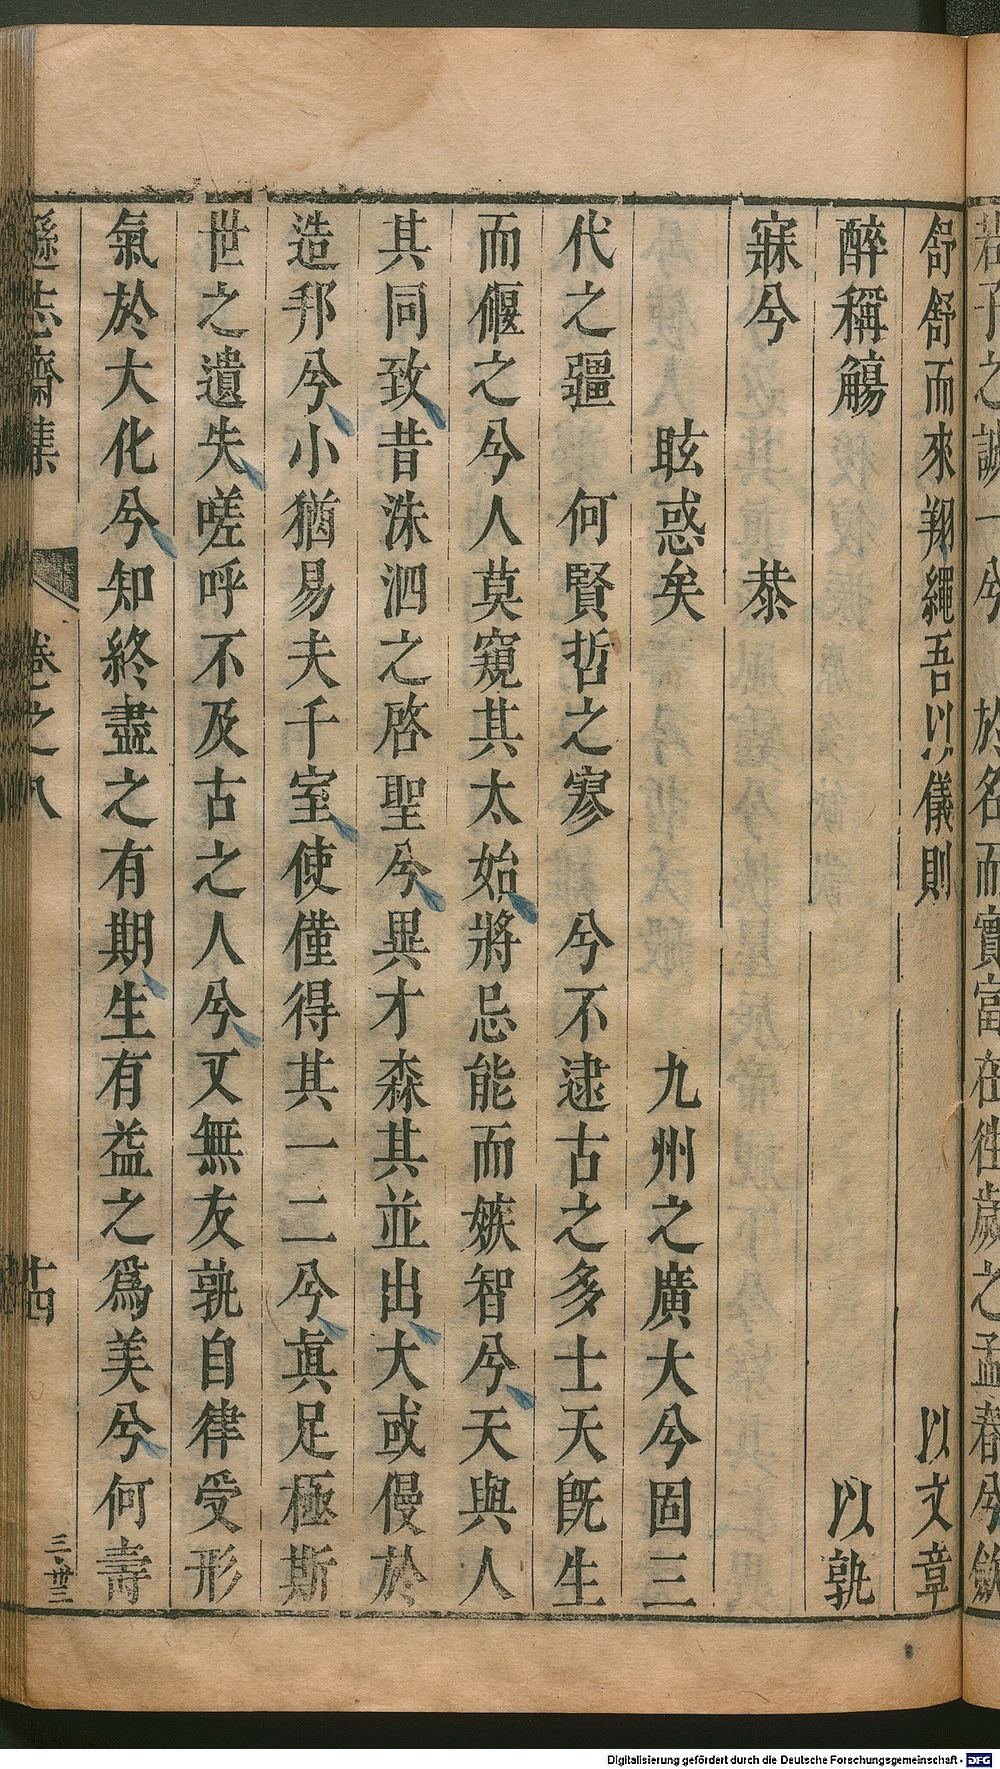 君子之誠一兮 於名而實富在往歲之孟春兮斂
舒舒而來翔繩吾以儀則 以文章
醉稱觴 以孰
寐兮 恭
眩惑矣 九州之廣大兮固三
代之疆 何賢哲之寥 兮不逮古之多士天旣生
而偃之兮人莫窺其太始將忌能而嫉智兮天與人
其同致昔洙泗之啓聖兮異才森其並出大或僈於
造邦兮小猶易夫千室使僅得其一二兮眞足極斯
世之遺失嗟呼不及古之人兮又無友孰自律受形
氣於大化兮知終盡之有期生有益之爲美兮何壽
遜志齋集 卷之八 十四
三卅三
Digitalisierung gefördert durch die Deutsche Forschungsgemeinschaft - DFG